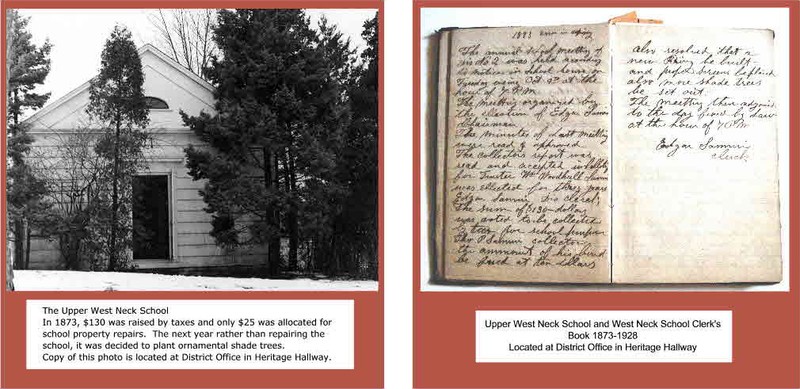 The Upper West Neck School
In 1873, $130 was raised by taxes and only $25 was allocated for
school property repairs. The next year rather than repairing the
school, it was decided to plant ornamental shade trees.
Copy of this photo is located at District Office in Heritage Hallway.
1873
The annual school meeting of
No 2 was held according
to notice in school house on
evening Oct at the
hour of 7 P.M.
The meeting organized by
the election of Edgar
Chairman
The minutes of last meeting
were read & approved
The collectors report was
read and accepted
for Trustee Wm Woodhull
was elected for three years
Edgar Sammis Do clerk,
The sum of $130 dollars
was voted to be collected
by tax for school purposes
P Sammis collector
the ammount of his bond
be fixed at ten dollars
also resolved that a
new be built
and
also more shade trees
be set out.
The meeting then adjourned
to the day fixed by law
at the hour of 7 P.M
Edgar Sammis
clerk
Upper West Neck School and West Neck School Clerk's
Book 1873-1928
Located at District Office in Heritage Hallway